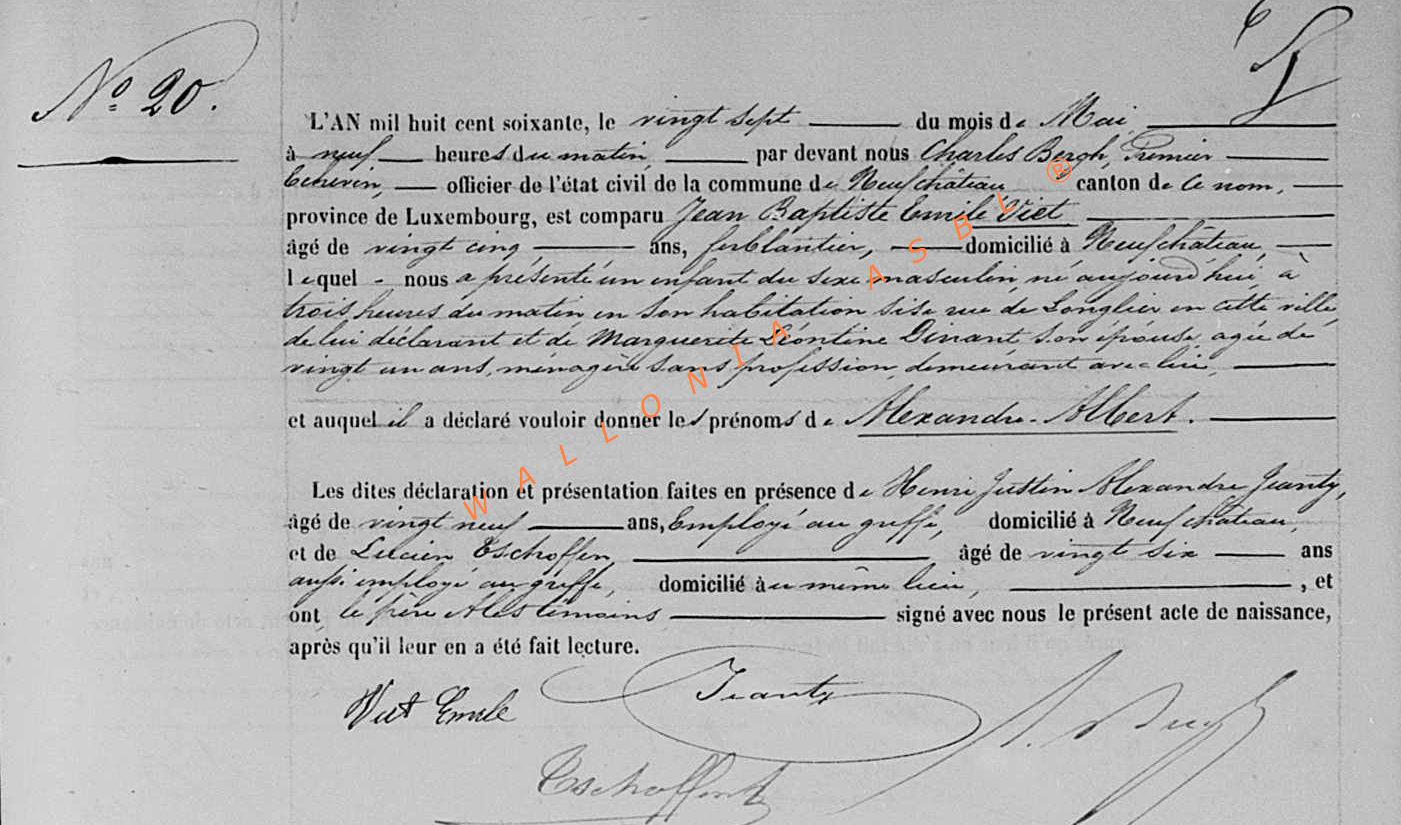 N° 20.
L'AN mil huit cent soixante, le vingt sept du mois de Mai,
à neuf heures du matin, par devant nous Charles Bergh, Premier
Echevin, officier de l'état civil de la commune de Neufchâteau canton de ce nom,
province de Luxembourg, est comparu Jean Baptiste Emile Viet
âgé de vingt cinq ans, ferblantier, domicilié à Neufchâteau,
lequel nous a présenté un enfant du sexe masculin né aujourd'hui à
trois heures du matin en son habitation sise rue de Longlier en cette ville,
de lui déclarant et de Marguerite Léontine Dinant son épouse, agée de
vingt un ans, ménagère sans profession, demeurant avec lui,
et auquel il a déclaré vouloir donner les prénoms de Alexandre-Albert.
Les dites déclaration et présentation faites en présence de Henri Justin Alexandre Jeanty,
âgé de vingt neuf ans, Employé au greffe, domicilié à Neufchâteau,
et de Lucien Eschoffen âgé de vingt six ans
aussi employé au greffe, domicilié au même lieu, , et
ont, le père et les témoins signé avec nous le présent acte de naissance,
après qu'il leur en a été fait lecture.
Viet Emile Jeanty
WALLONIA ASBL ®